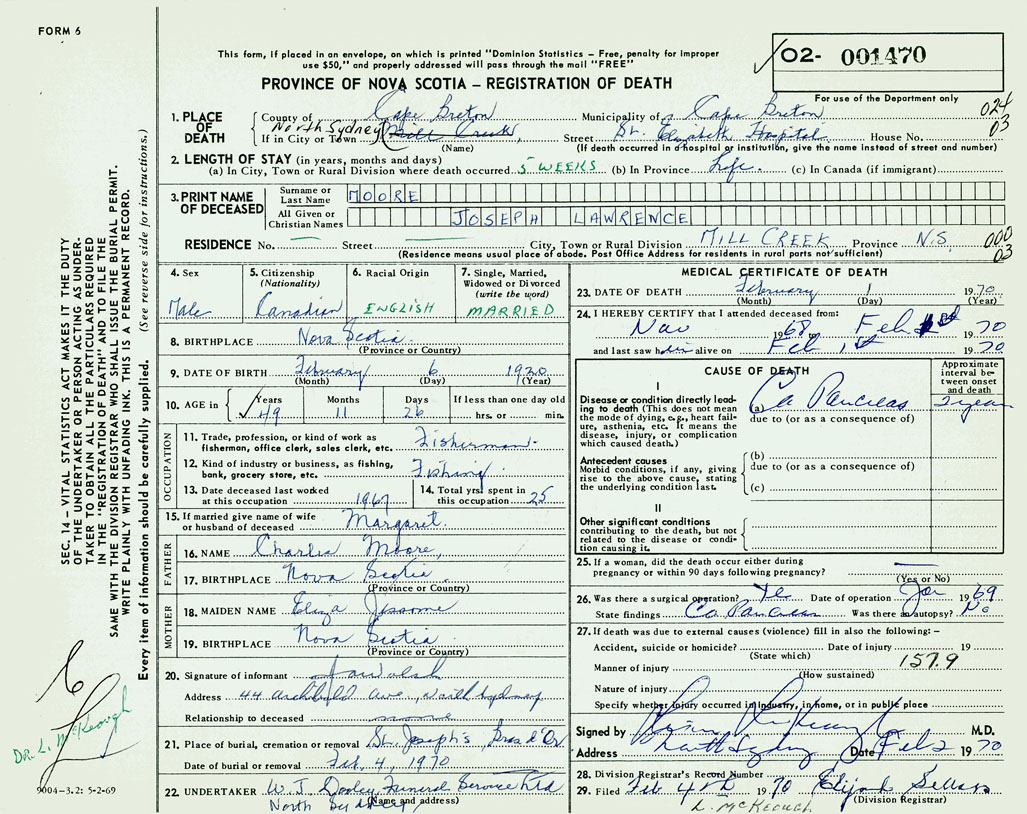 FORM 6
This form, if placed in an envelope, on which is printed "Dominion Statistics – Free, penalty for improper
use $50," and properly addressed will pass through the mail "FREE"
O2- 001470
PROVINCE OF NOVA SCOTIA – REGISTRATION OF DEATH
For use of the Department only
024
03
1. PLACE OF DEATH
County of Cape Breton Municipality of Cape Breton
If in City or Town North Sydney Mill Creek, Street St. Elizabeth Hospital House No.
(Name) (If death occurred in a hospital or institution, give the name instead of street and number)
2. LENGTH OF STAY (in years, months and days)
(a) In City, Town or Rural Division where death occurred 5 WEEKS (b) In Province Life. (c) In Canada (if immigrant)
3. PRINT NAME OF DECEASED
Surname or Last Name MOORE
All Given or Christian Names JOSEPH LAWRENCE
RESIDENCE No. — Street — City, Town or Rural Division MILL CREEK Province N.S. 000
03
(Residence means usual place of abode. Post Office Address for residents in rural parts not sufficient)
4. Sex
Male
5. Citizenship
(Nationality)
Canadian
6. Racial Origin
ENGLISH
7. Single, Married,
Widowed or Divorced
(write the word)
MARRIED
8. BIRTHPLACE Nova Scotia
(Province or Country)
9. DATE OF BIRTH February 6 1920
(Month) (Day) (Year)
10. AGE in Years Months Days If less than one day old
49 11 26 hrs. or min.
OCCUPATION
11. Trade, profession, or kind of work as
fisherman, office clerk, sales clerk, etc. Fisherman
12. Kind of industry or business, as fishing,
bank, grocery store, etc. Fishing
13. Date deceased last worked
at this occupation 1967
14. Total yrs. spent in
this occupation 25
15. If married give name of wife
or husband of deceased Margaret.
FATHER
16. NAME Charlie Moore,
17. BIRTHPLACE Nova Scotia
(Province or Country)
MOTHER
18. MAIDEN NAME Eliza Jessome
19. BIRTHPLACE Nova Scotia
(Province or Country)
20. Signature of informant Walsh
Address 44 Archibald Ave., North Sydney
Relationship to deceased none
21. Place of burial, cremation or removal St. Joseph's, Bras d'Or
Date of burial or removal Feb. 4, 1970
22. UNDERTAKER W. J. Dooley Funeral Service Ltd
North Sydney (Name and address)
MEDICAL CERTIFICATE OF DEATH
23. DATE OF DEATH February 1 1970
(Month) (Day) (Year)
24. I HEREBY CERTIFY that I attended deceased from:
Nov 1968 to Feb 1st 1970
and last saw him alive on Feb 1st 1970
CAUSE OF DEATH
Approximate interval between onset and death
I
Disease or condition directly leading
to death (This does not mean
the mode of dying, e.g., heart failure,
asthenia, etc. It means the
disease, injury, or complication
which caused death.)
(a) Ca Pancreas 2 years
due to (or as a consequence of)
Antecedent causes
Morbid conditions, if any, giving
rise to the above cause, stating
the underlying condition last.
(b)
due to (or as a consequence of)
(c)
II
Other significant conditions
contributing to the death, but not
related to the disease or condition
causing it.
25. If a woman, did the death occur either during
pregnancy or within 90 days following pregnancy? —
(Yes or No)
26. Was there a surgical operation? Yes Date of operation Jan 1969
State findings Ca. Pancreas Was there an autopsy? No
27. If death was due to external causes (violence) fill in also the following: –
Accident, suicide or homicide? Date of injury 19
(State which)
Manner of injury 157.9
(How sustained)
Nature of injury
Specify whether injury occurred in industry, in home, or in public place
Signed by M.D.
Address North Sydney Date Feb 2 1970
28. Division Registrar's Record Number
29. Filed Feb 4th 1970 Elijah
(Division Registrar)
L. McKEOUGH
SEC. 14 – VITAL STATISTICS ACT MAKES IT THE DUTY
OF THE UNDERTAKER OR PERSON ACTING AS UNDERTAKER
TO OBTAIN ALL THE PARTICULARS REQUIRED
IN THE "REGISTRATION OF DEATH" AND TO FILE THE
SAME WITH THE DIVISION REGISTRAR WHO SHALL ISSUE THE BURIAL PERMIT.
WRITE PLAINLY WITH UNFADING INK. THIS IS A PERMANENT RECORD.
Every item of information should be carefully supplied. (See reverse side for instructions.)
DR. L. McKeough
9004-3.2: 5-2-69